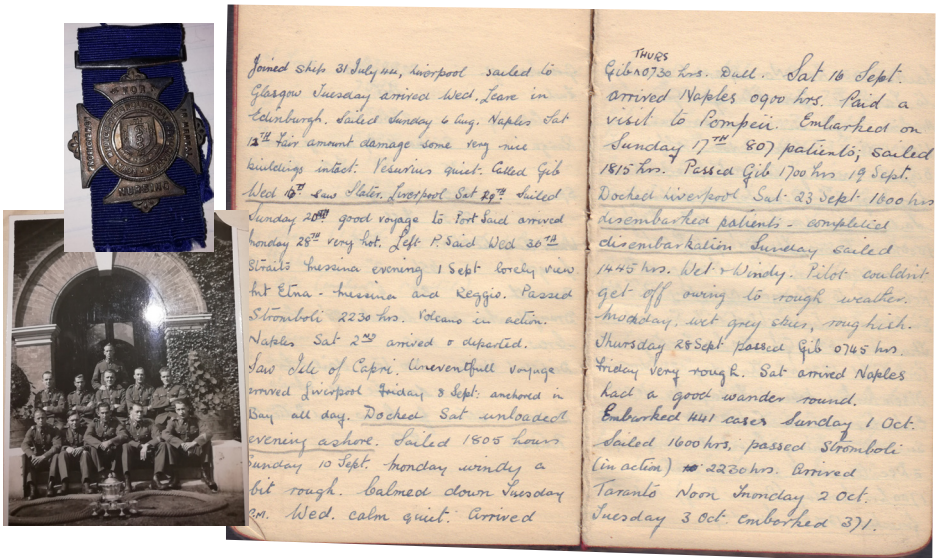 FOR
PROFICIENCY
NURSING
Joined ship 31 July 44, Liverpool sailed to
Glasgow Tuesday arrived Wed. Leave in
Edinburgh. Sailed Sunday 6 Aug. Naples Sat
12TH Fair amount damage some very nice
buildings intact. Vesuvius quiet. Called Gib
Wed 16TH saw Slater. Liverpool Sat Sailed
Sunday 20TH good voyage to Port Said arrived
Monday 28TH very hot. Left P. Said Wed 30TH
Straits Messina evening 1 Sept lovely view
Mt Etna - Messina and Reggio. Passed
Stromboli 2230 hrs. Volcano in action.
Naples Sat 2ND arrived & departed.
Saw Isle of Capri. Uneventfull voyage
arrived Liverpool Friday 8 Sept: anchored in
Bay all day. Docked Sat unloaded
evening ashore. Sailed 1805 hours
Sunday 10 Sept. Monday windy a
bit rough. Calmed down Tuesday
P.M. Wed. calm quiet. Arrived
THURS
Gib 0730 hrs. Dull. Sat 16 Sept.
arrived Naples 0900 hrs. Paid a
visit to Pompeii. Embarked on
Sunday 17TH 807 patients, sailed
1815 hrs. Passed Gib 1700 hrs 19 Sept.
Docked Liverpool Sat. 23 Sept 1600 hrs
disembarked patients - completed
disembarkation Sunday sailed
1445 hrs. Wet & Windy. Pilot couldn't
get off owing to rough weather.
Monday, wet grey skies, roughish.
Thursday 28 Sept passed Gib 0745 hrs.
Friday very rough. Sat arrived Naples
had a good wander round.
Embarked 441 cases Sunday 1 Oct.
Sailed 1600 hrs, passed Stromboli
(in action) 2230 hrs. Arrived
Taranto Noon Monday 2 Oct.
Tuesday 3 Oct embarked 371.